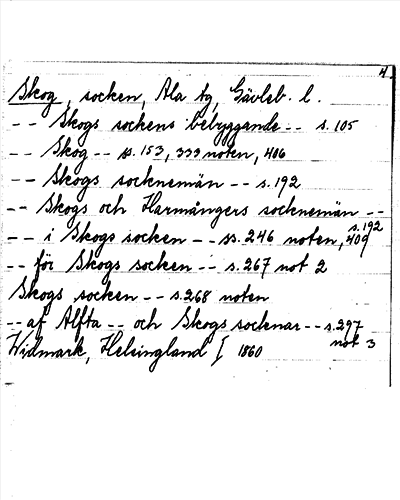 4
Skog, socken, Ala tg, Gävleb. l.
-- Skogs sockens bebyggande -- s. 105
-- Skog -- ss. 153, 333 noten, 406
-- Skogs socknemän -- s. 192
-- Skogs och Harmångers socknemän -- s. 192
-- i Skogs socken -- ss. 246 noten, 409
-- för Skogs socken -- s. 267 not 2
Skogs socken -- s. 268 noten
-- af Alfta -- och Skogs socknar -- s. 297 not 3
Widmark, Helsingland I 1860